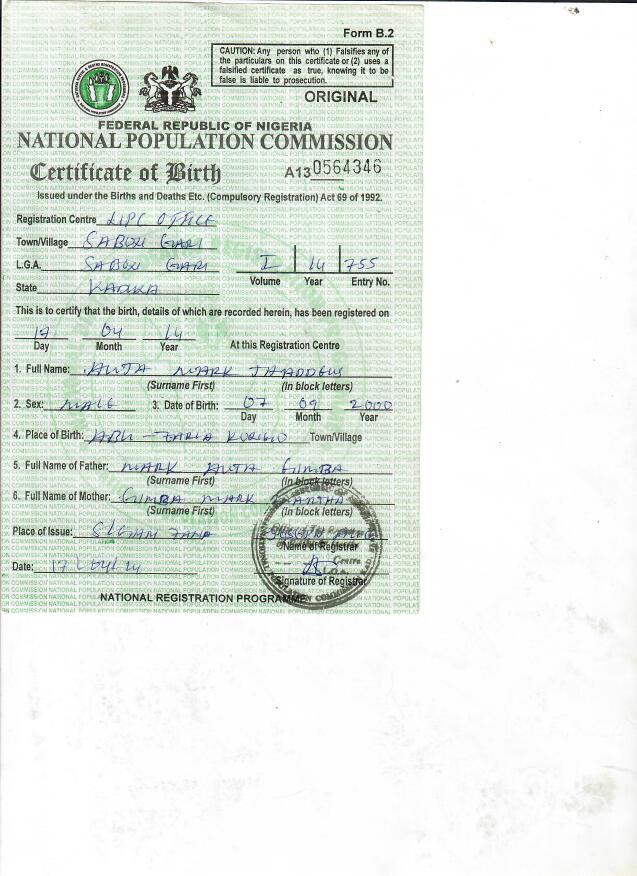 Form B.2
CAUTION: Any person who (1) Falsifies any of
the particulars on this certificate or (2) uses a
falsified certificate as true, knowing it to be
false is liable to prosecution.
ORIGINAL
FEDERAL REPUBLIC OF NIGERIA
NATIONAL POPULATION COMMISSION
Certificate of Birth A13 0564346
Issued under the Births and Deaths Etc. (Compulsory Registration) Act 69 of 1992.
Registration Centre OFFICE
Town/Village SABON GARI
L.G.A. SABON GARI I 14 755
Volume Year Entry No.
State
This is to certify that the birth, details of which are recorded herein, has been registered on
17 04 14
Day Month Year At this Registration Centre
1. Full Name: MARK THADDEUS
(Surname First) (In block letters)
2. Sex: MALE 3. Date of Birth: 07 09 2000
Day Month Year
4. Place of Birth: ABU - ZARIA Town/Village
5. Full Name of Father: MARK GIMBA
(Surname First) (In block letters)
6. Full Name of Mother: GIMBA MARK
(Surname First) (In block letters)
Place of Issue:
Name of Registrar
Date: 17
Signature of Registrar
NATIONAL REGISTRATION PROGRAMME